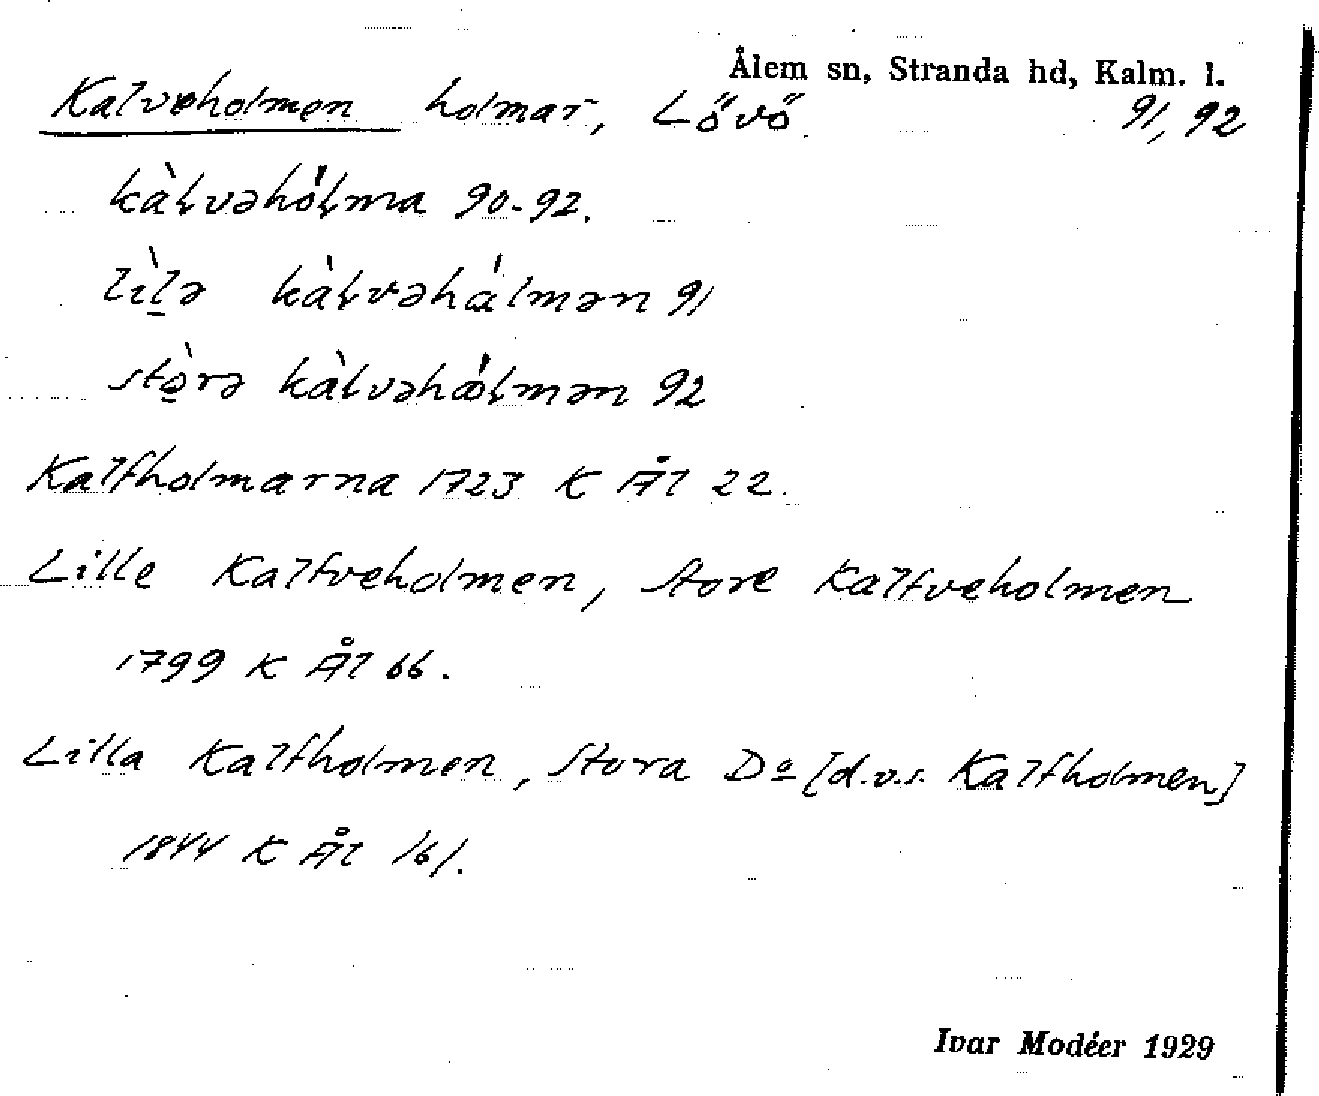 Ålem sn, Stranda hd, Kalm. l.
Kalveholmen holmar, Lövö. 91, 92
kàɫvəhóɫma 90-92.
lìlə kàɫvəhálmən 91
stòrə kàɫvəhóɫmən 92
Kalfholmarna 1723 K Ål 22.
Lille Kalfveholmen, Store Kalfveholmen
1799 K Ål 66.
Lilla Kalfholmen, Stora Dº [d.v.s. Kalfholmen]
1844 K Ål 161.
Ivar Modéer 1929